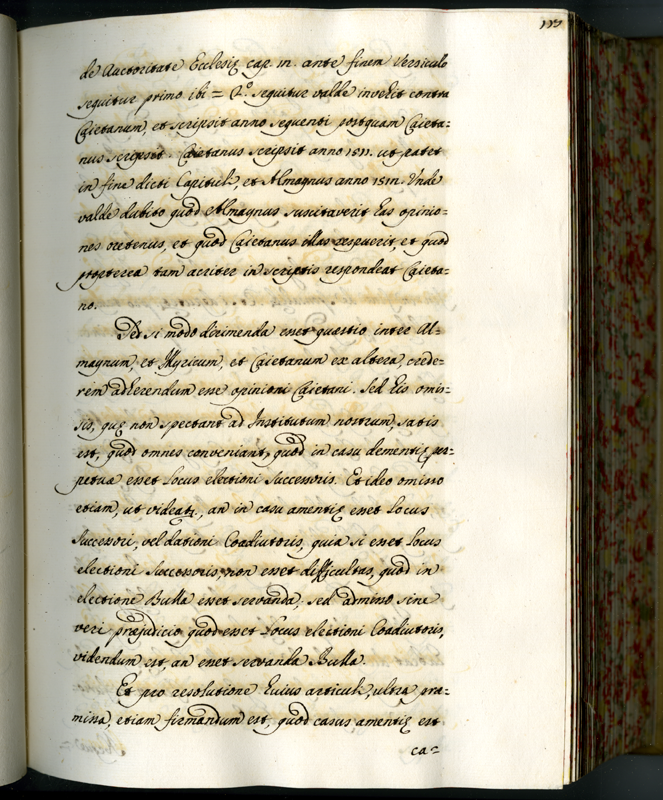 de Auctoritate Ecclesię cap. m. ante finem Versiculo
sequitur primo ibi = 2.º sequitur valde invehit contra
Caietanum, et scripsit anno sequenti postquam Caieta=
nus scripsit. Caietanus scripsit anno 1511. ut patet
in fine dicti Capituli, et Almagnus anno 1512. Unde
valde dubito quod Almagnus suscitaverit has opinio=
nes oretenus, et quod Caietanus illas respuerit, et quod
propterea tam acriter in scriptis respondeat Caieta=
no.
Per si modo dirimenda esset quæstio inter Al=
magnum, et Illyricum, et Caietanum ex altera, crede=
rem adherendum esse opinioni Caietani. Sed his omis=
sis, quę non spectant ad Institutum nostrum, satis
est, quod omnes conveniant, quod in casu dementię per=
petuæ esset locus electioni successoris. Et ideo omisso
etiam, ut videatr., an in casu amentię esset locus
successori, vel dationi Coadiutoris, quia si esset locus
electioni successoris, non esset difficultas, quod in
electione Bulla esset servanda, sed admisso sine
veri præjudicio quod esset locus electioni Coadiutoris,
videndum est, an esset servanda Bulla.
Et pro resolutione huius articuli, ultra præ=
missa, etiam firmandum est, quod casus amentię est
ca=